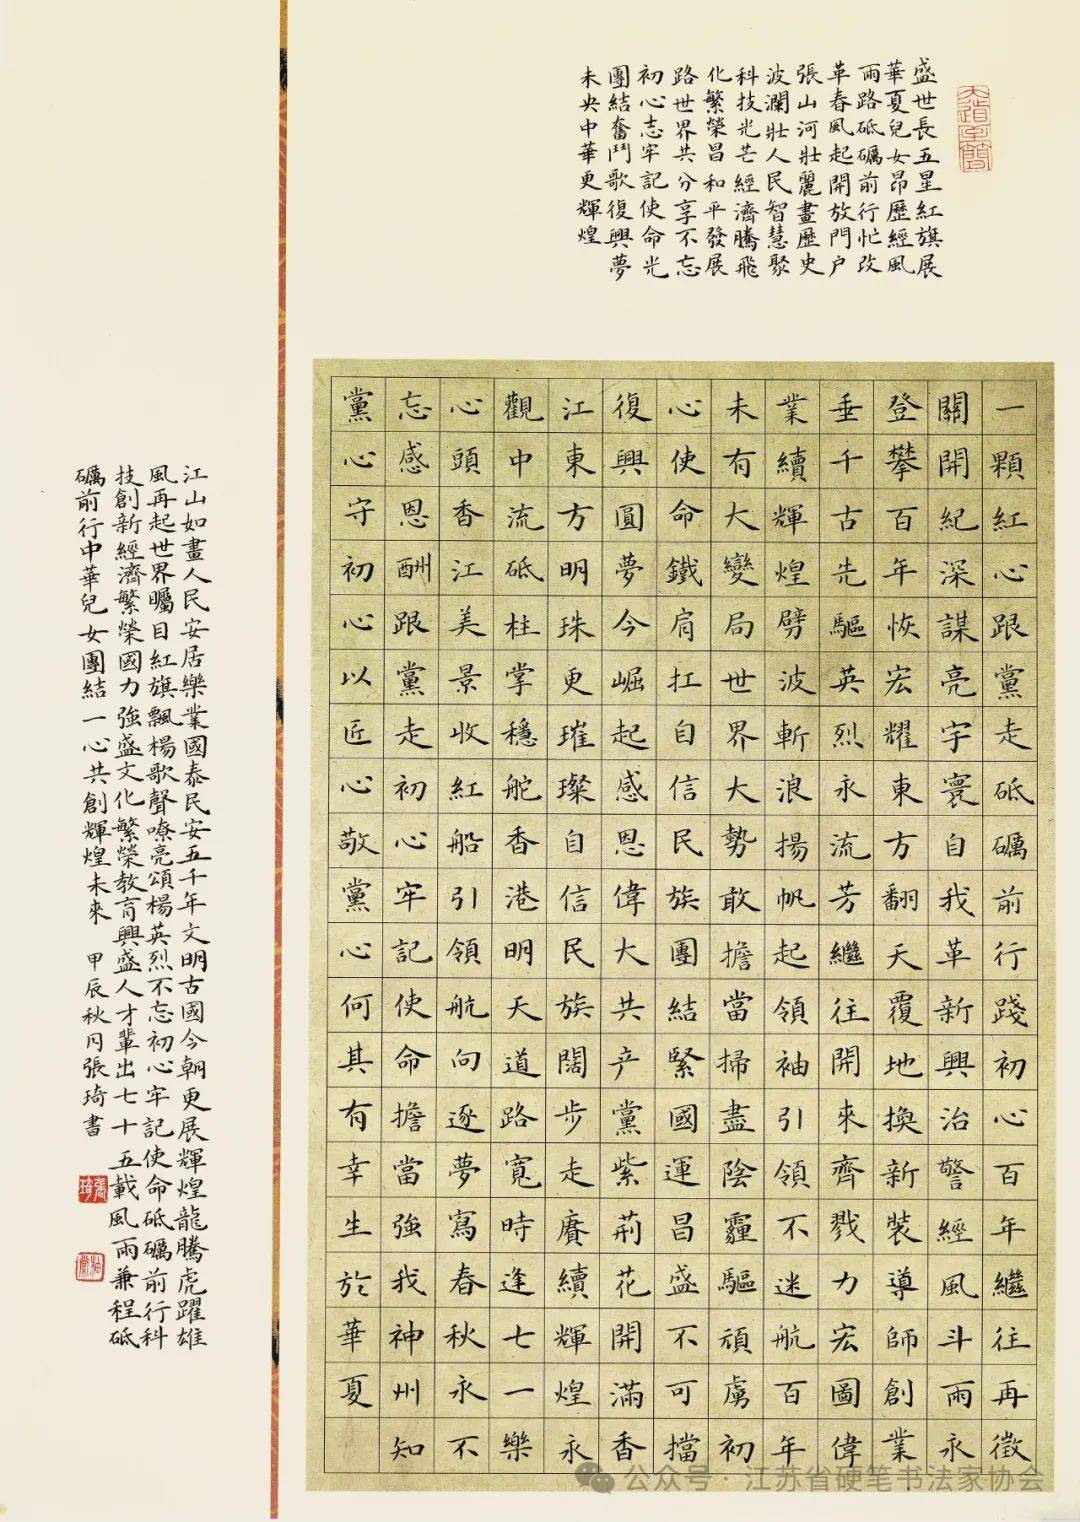 大道至簡
盛世長五星紅旗展
華夏兒女昂歷經風
雨路砥礪前行忙改
革春風起開放門户
張山河壯麗畫歷史
波瀾壯人民智慧聚
科技光芒經濟騰飛
化繁榮昌和平發展
路世界共分享不忘
初心志牢記使命光
團結奮鬥歌復興夢
未央中華更輝煌
一顆紅心跟黨走砥礪前行踐初心百年繼往再徵
關開紀深謀亮宇寰自我革新興治警經風斗雨永
登攀百年恢宏耀東方翻天覆地換新裝導師創業
垂千古先驅英烈永流芳繼往開來齊戮力宏圖偉
業續輝煌劈波斬浪揚帆起領袖引領不迷航百年
未有大變局世界大勢敢擔當掃盡陰霾驅頑虜初
心使命鐵肩扛自信民族團結緊國運昌盛不可擋
復興圓夢今崛起感恩偉大共产黨紫荊花開滿香
江東方明珠更璀璨自信民族闊步走賡續輝煌永
觀中流砥柱掌穩舵香港明天道路寬時逢七一樂
心頭香江美景收紅船引領航向逐夢寫春秋永不
忘感恩酬跟黨走初心牢記使命擔當強我神州知
黨心守初心以匠心敬黨心何其有幸生於華夏
江山如畫人民安居樂業國泰民安五千年文明古國今朝更展輝煌龍騰虎躍雄
風再起世界矚目紅旗飄楊歌聲嘹亮頌楊英烈不忘初心牢記使命砥礪前行科
技創新經濟繁榮國力強盛文化繁榮教育興盛人才輩出七十五載風雨兼程砥
礪前行中華兒女團結一心共創輝煌未來 甲辰秋月張琦書
張琦
公众号·江苏省硬笔书法家协会